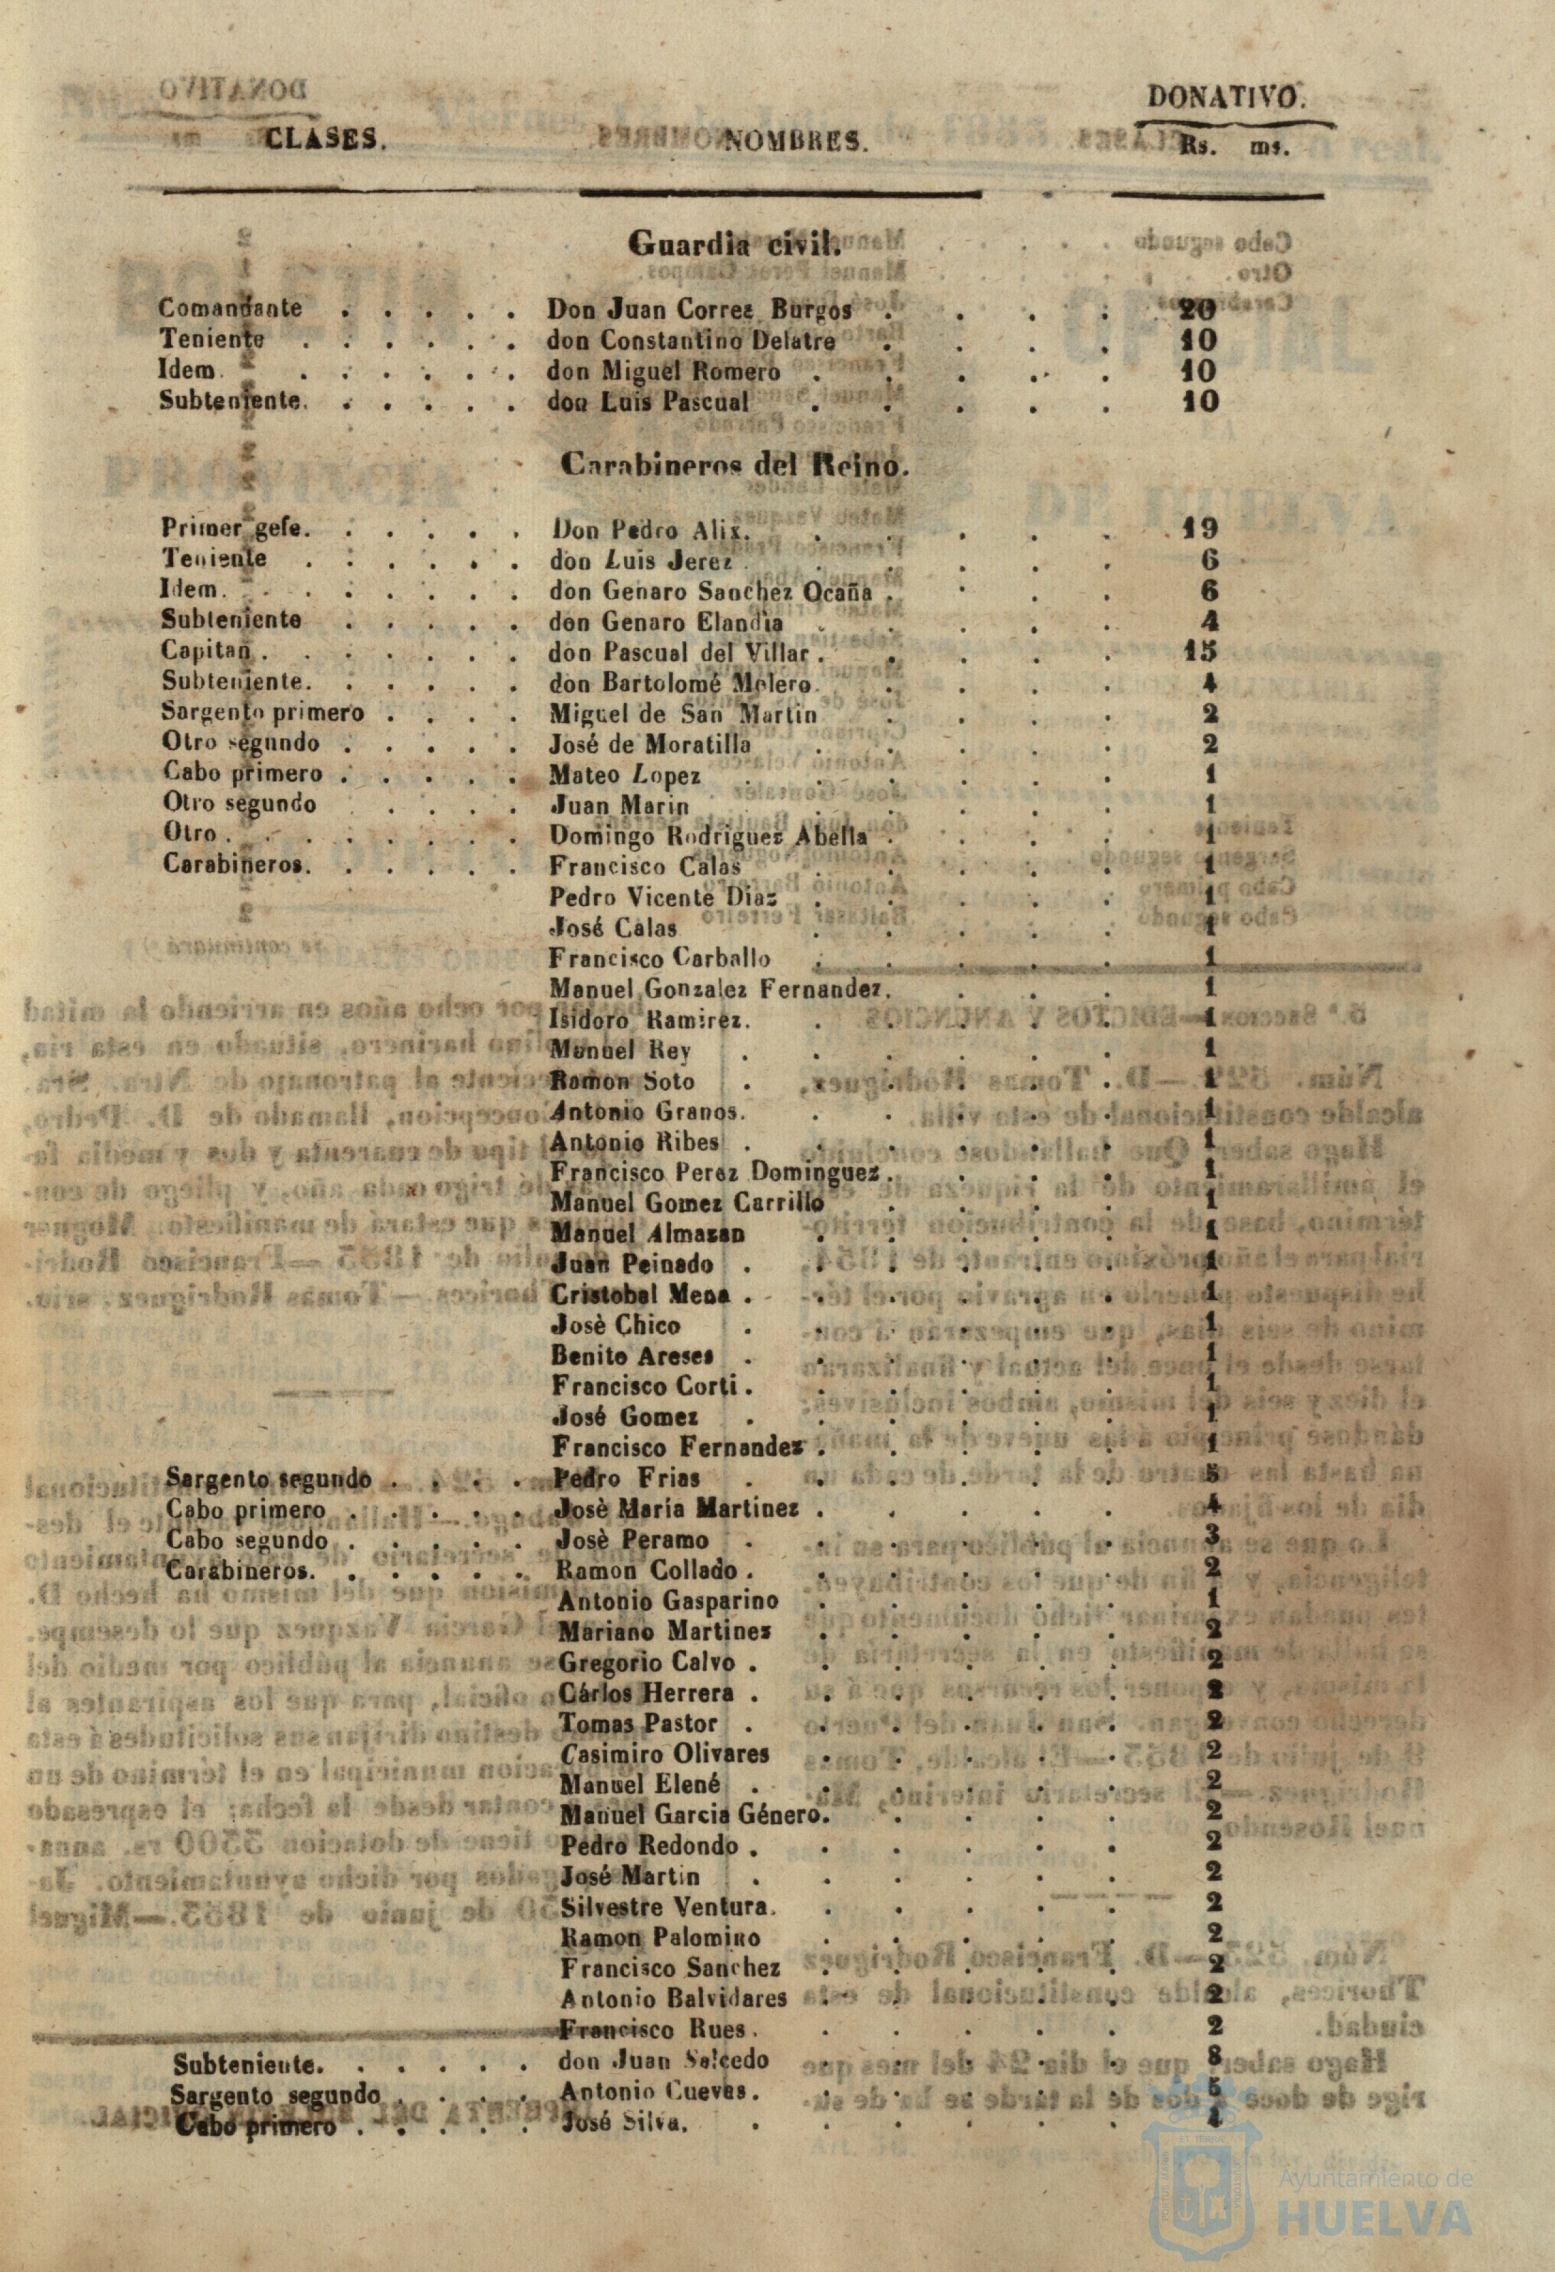 DONATIVO.
CLASES. NOMBRES. Rs. ms.
Guardia civil.
Comandante . . . . . Don Juan Correz Burgos . . . . 20
Teniente . . . . . . don Constantino Delatre . . . . 10
Idem. . . . . . . don Miguel Romero . . . . . 10
Subteniente. . . . . . don Luis Pascual . . . . . 10
Carabineros del Reino.
Primer gefe. . . . . . Don Pedro Alix. . . . . . 19
Teniente . . . . . . don Luis Jerez . . . . . 6
Idem. . . . . . . don Genaro Sanchez Ocaña . . . . 6
Subteniente . . . . . don Genaro Elandia . . . . . 4
Capitan . . . . . . . don Pascual del Villar . . . . . 15
Subteniente. . . . . . don Bartolomé Molero . . . . 4
Sargento primero . . . . Miguel de San Martin . . . . 2
Otro segundo . . . . . José de Moratilla . . . . . 2
Cabo primero . . . . . Mateo Lopez . . . . . . 1
Otro segundo . . . . Juan Marin . . . . . 1
Otro . . . . . . . Domingo Rodriguez Abella . . . . 1
Carabineros. . . . . . Francisco Calas . . . . . 1
Pedro Vicente Diaz . . . . . 1
José Calas . . . . . 1
Francisco Carballo . . . . . 1
Manuel Gonzalez Fernandez. . . . 1
Isidoro Ramirez. . . . . . 1
Manuel Rey . . . . . . 1
Ramon Soto . . . . . . 1
Antonio Granos. . . . . . 1
Antonio Ribes . . . . . . 1
Francisco Perez Dominguez . . . . 1
Manuel Gomez Carrillo . . . . 1
Manuel Almazan . . . . . 1
Juan Peinado . . . . . . 1
Cristobal Mena . . . . . . 1
Josè Chico . . . . . . 1
Benito Areses . . . . . . 1
Francisco Corti . . . . . . 1
José Gomez . . . . . . 1
Francisco Fernandez . . . . . 1
Sargento segundo . . . . Pedro Frias . . . . . . 5
Cabo primero . . . . . Josè Maria Martinez . . . . . 4
Cabo segundo . . . . . Josè Peramo . . . . . . 3
Carabineros. . . . . . Ramon Collado . . . . . . 2
Antonio Gasparino . . . . . 1
Mariano Martinez . . . . . 2
Gregorio Calvo . . . . . . 2
Cárlos Herrera . . . . . . 2
Tomas Pastor . . . . . . 2
Casimiro Olivares . . . . . 2
Manuel Elené . . . . . . 2
Manuel Garcia Género. . . . . 2
Pedro Redondo . . . . . . 2
José Martin . . . . . . 2
Silvestre Ventura. . . . . . 2
Ramon Palomino . . . . . 2
Francisco Sanchez . . . . . 2
Antonio Balvidares . . . . . 2
Francisco Rues . . . . . . 2
Subteniente. . . . . . don Juan Salcedo . . . . . 8
Sargento segundo . . . . Antonio Cuevas . . . . . . 5
Cabo primero . . . . . José Silva. . . . . . . 4
Ayuntamiento de
HUELVA